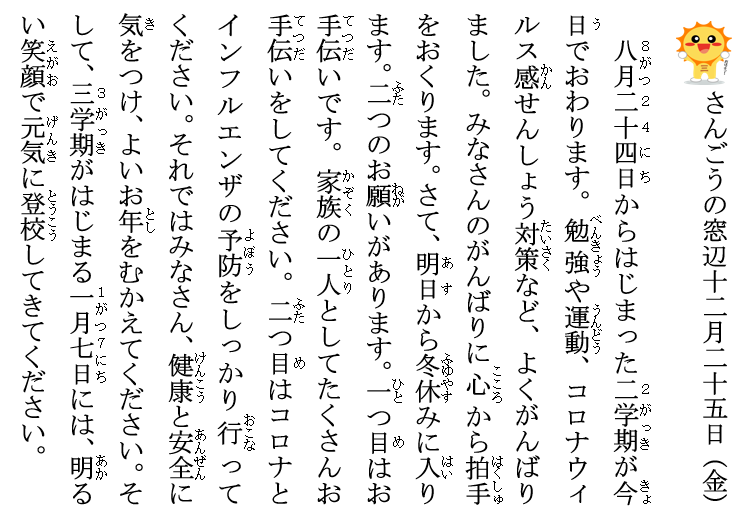 さんごうの窓辺十二月二十五日（金）
八月二十四日からはじまった二学期が今
日でおわります。勉強や運動、コロナウィ
ルス感せんしょう対策など、よくがんばり
ました。みなさんのがんばりに心から拍手
をおくります。さて、明日から冬休みに入り
ます。二つのお願いがあります。一つ目はお
手伝いです。家族の一人としてたくさんお
手伝いをしてください。二つ目はコロナと
インフルエンザの予防をしっかり行って
ください。それではみなさん、健康と安全に
気をつけ、よいお年をむかえてください。そ
して、三学期がはじまる一月七日には、明る
い笑顔で元気に登校してきてください。